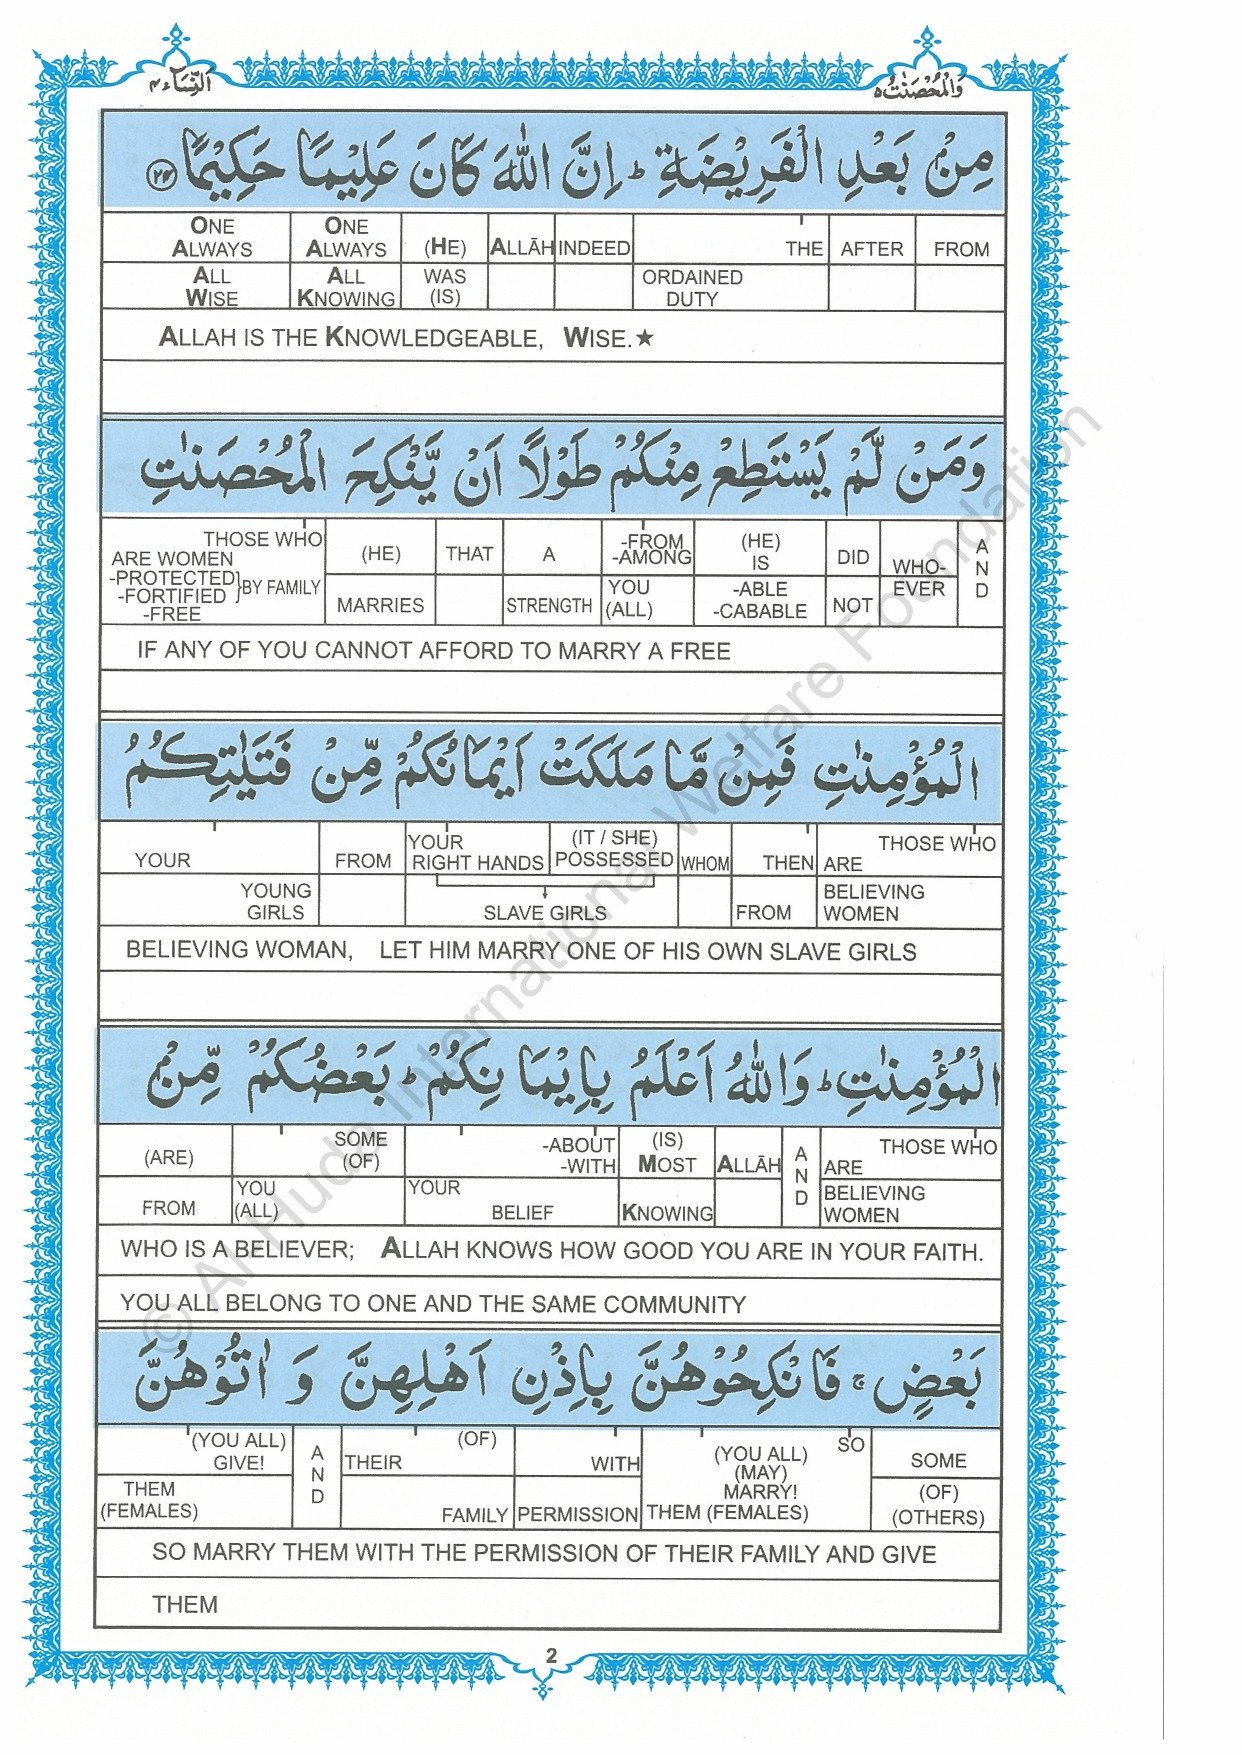 النساء ۴
والمحصنت ۵
مِنْۢ بَعْدِ الْفَرِيْضَةِ ؕ اِنَّ اللّٰهَ كَانَ عَلِيْمًا حَكِيْمًا ۝۲۴
ONE ALWAYS ONE ALWAYS (HE) ALLĀH INDEED THE AFTER FROM
ALL WISE ALL KNOWING WAS (IS) ORDAINED DUTY
ALLAH IS THE KNOWLEDGEABLE, WISE.★
وَمَنْ لَّمْ يَسْتَطِعْ مِنْكُمْ طَوْلًا اَنْ يَّنْكِحَ الْمُحْصَنٰتِ
THOSE WHO ARE WOMEN -PROTECTED -FORTIFIED -FREE }BY FAMILY (HE) THAT A -FROM -AMONG (HE) IS DID WHO- AND
MARRIES STRENGTH YOU (ALL) -ABLE -CABABLE NOT EVER
IF ANY OF YOU CANNOT AFFORD TO MARRY A FREE
الْمُؤْمِنٰتِ فَمِنْ مَّا مَلَكَتْ اَيْمَانُكُمْ مِّنْ فَتَيٰتِكُمُ
YOUR FROM YOUR RIGHT HANDS (IT / SHE) POSSESSED WHOM THEN THOSE WHO ARE
YOUNG GIRLS SLAVE GIRLS FROM BELIEVING WOMEN
BELIEVING WOMAN, LET HIM MARRY ONE OF HIS OWN SLAVE GIRLS
الْمُؤْمِنٰتِ ؕ وَاللّٰهُ اَعْلَمُ بِاِيْمَانِكُمْ ؕ بَعْضُكُمْ مِّنْۢ
(ARE) SOME (OF) -ABOUT -WITH (IS) MOST ALLĀH AND THOSE WHO ARE
FROM YOU (ALL) YOUR BELIEF KNOWING BELIEVING WOMEN
WHO IS A BELIEVER; ALLAH KNOWS HOW GOOD YOU ARE IN YOUR FAITH.
YOU ALL BELONG TO ONE AND THE SAME COMMUNITY
بَعْضٍ ۚ فَانْكِحُوْهُنَّ بِاِذْنِ اَهْلِهِنَّ وَ اٰتُوْهُنَّ
(YOU ALL) GIVE! AND THEIR (OF) WITH (YOU ALL) (MAY) MARRY! THEM (FEMALES) SO SOME
THEM (FEMALES) FAMILY PERMISSION (OF) (OTHERS)
SO MARRY THEM WITH THE PERMISSION OF THEIR FAMILY AND GIVE
THEM
2
© Al-Huda International Welfare Foundation